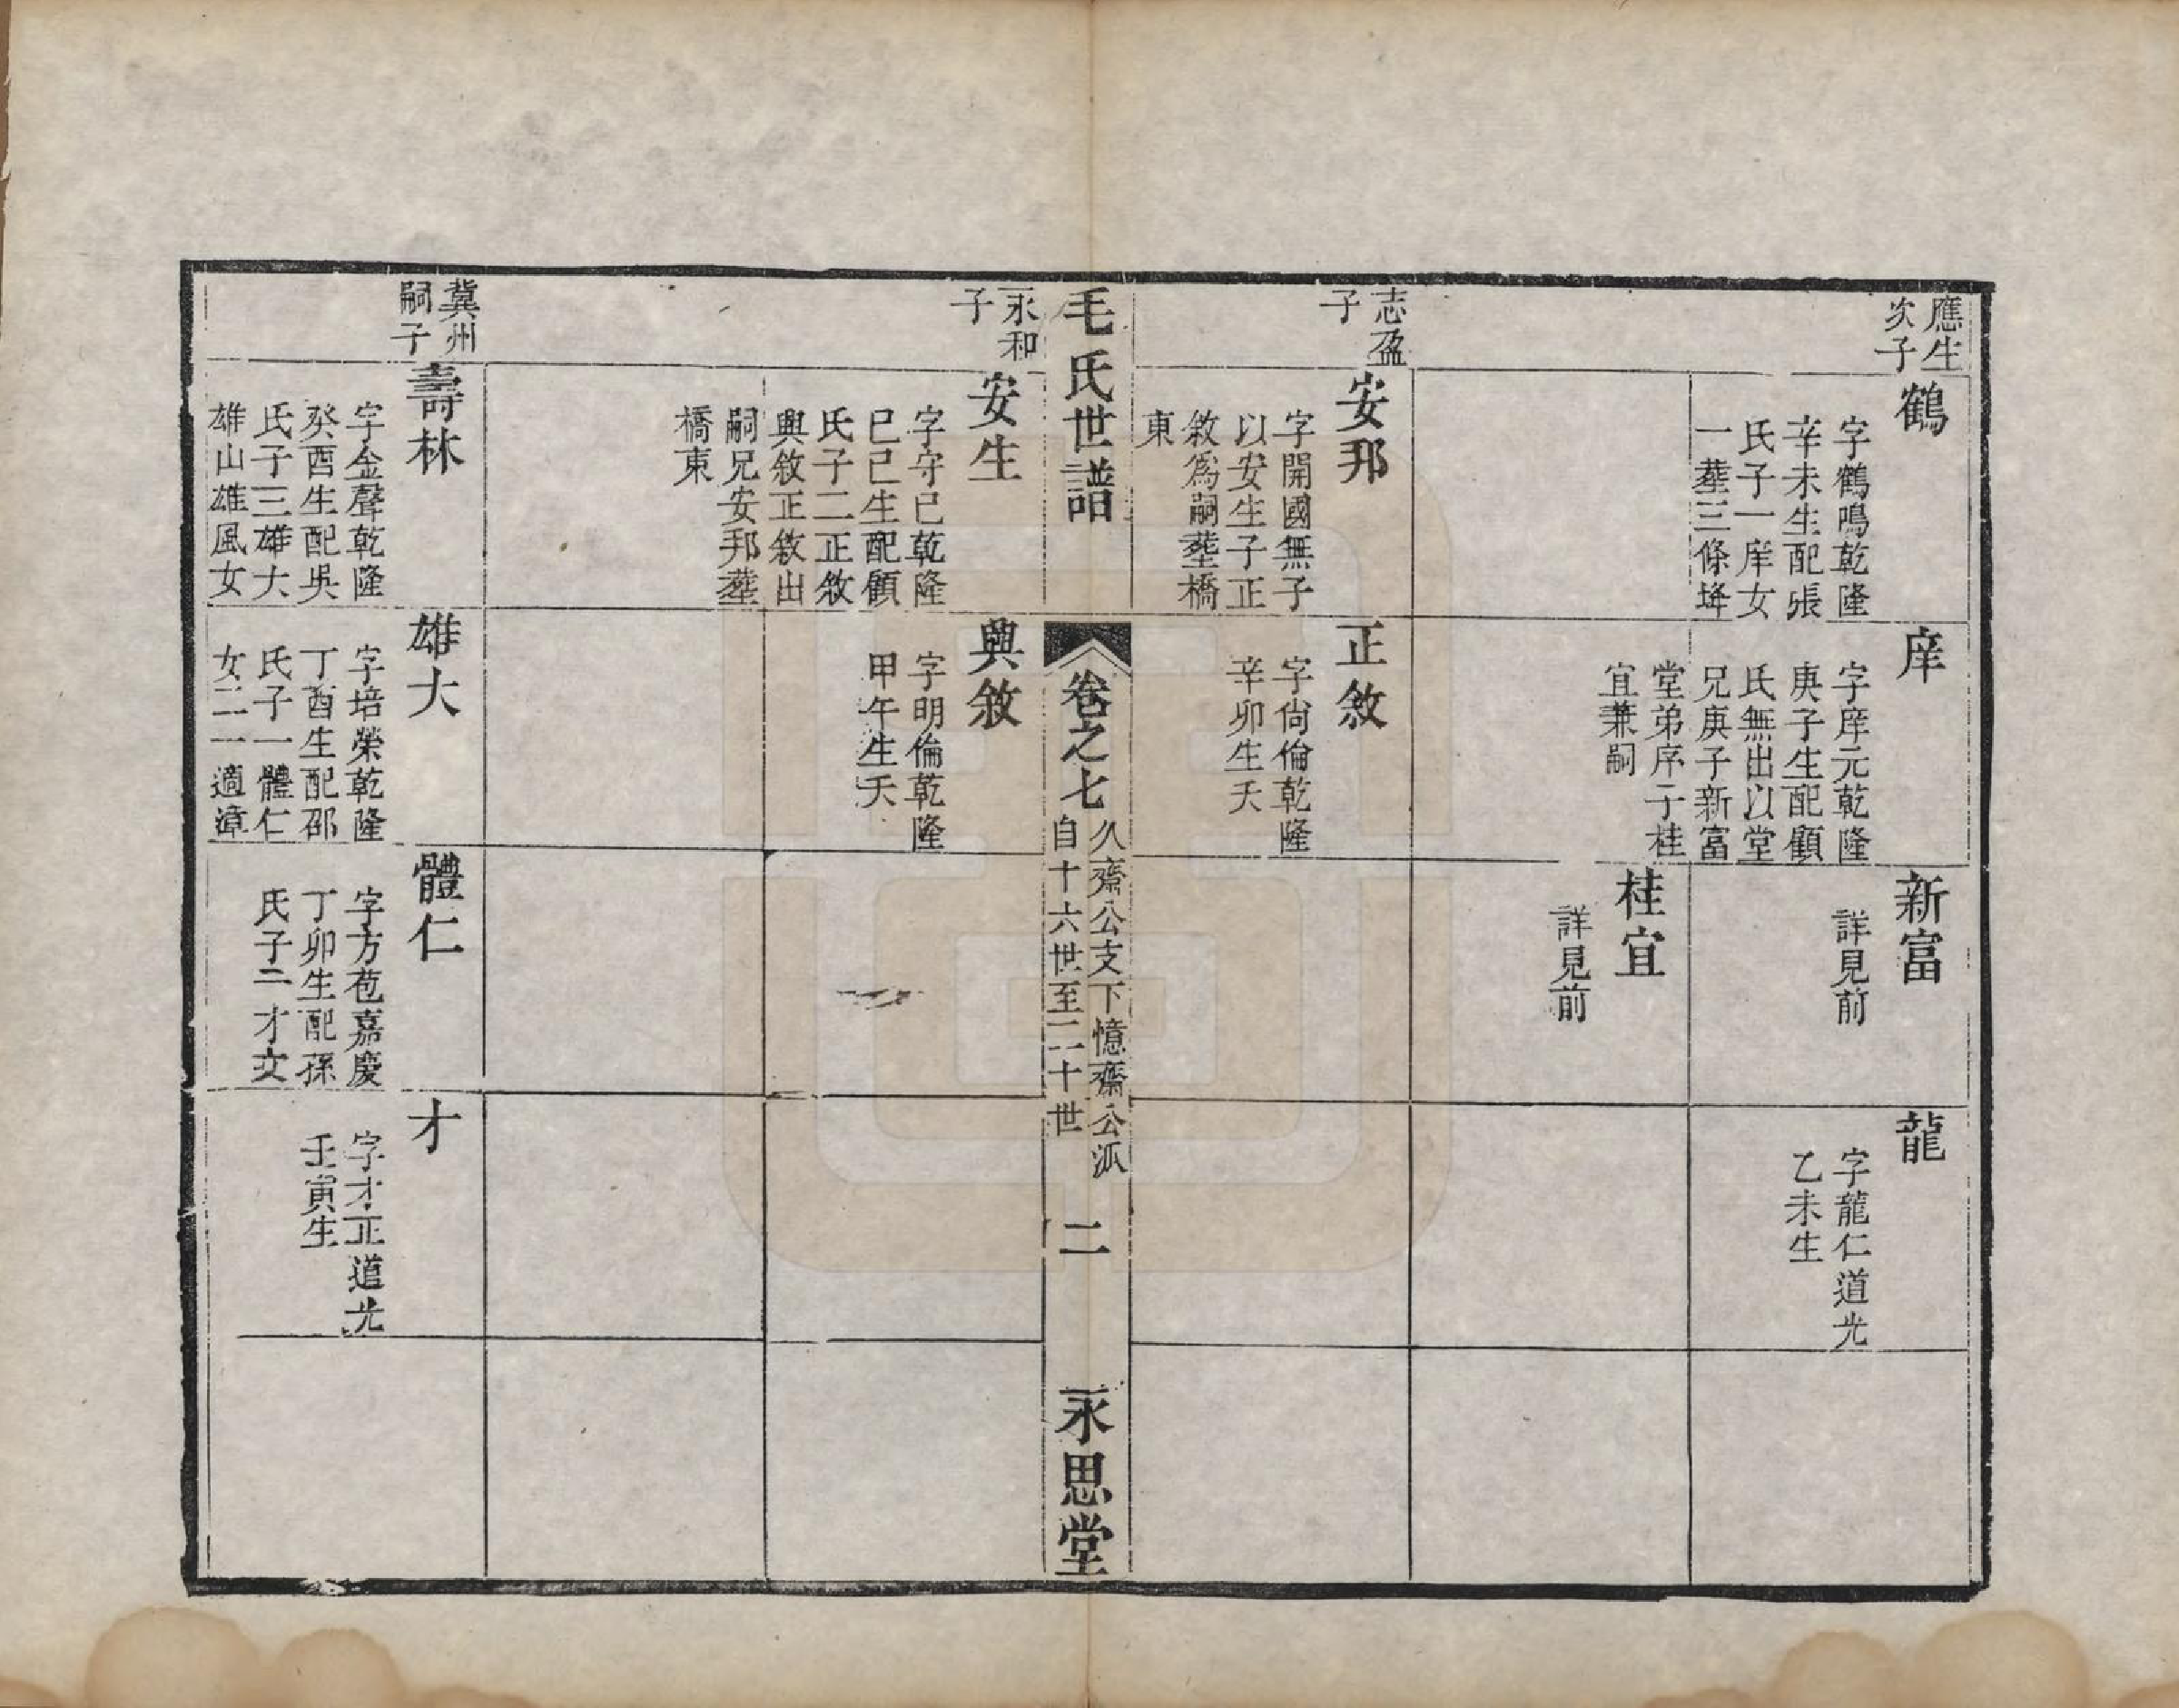 應生
次子
鶴
字鶴鳴乾隆
辛未生配張
氏子一庠女
一葬三條垟
庠
字庠元乾隆
庚子生配顧
氏無出以堂
兄庚子新富
堂弟序子桂
宜兼嗣
新富
詳見前
龍
字龍仁道光
乙未生
桂宜
詳見前
志盈
子
安邦
字開國無子
以安生子正
敘為嗣塟橋
東
正敘
字尙倫乾隆
辛卯生夭
毛氏世譜
卷之七
久齋公支下憶齋公派
自十六世至二十世
二
永思堂
永和
子
安生
字守已乾隆
已巳生配顧
氏子二正敘
興敘正敘出
嗣兄安邦塟
橋東
興敘
字明倫乾隆
甲午生夭
冀州
嗣子
壽林
字金聲乾隆
癸酉生配吳
氏子三雄大
雄山雄風女
雄大
字培榮乾隆
丁酉生配邵
氏子一體仁
女二一適漳
體仁
字方苞嘉慶
丁卯生配孫
氏子二才文
才
字才正道光
壬寅生